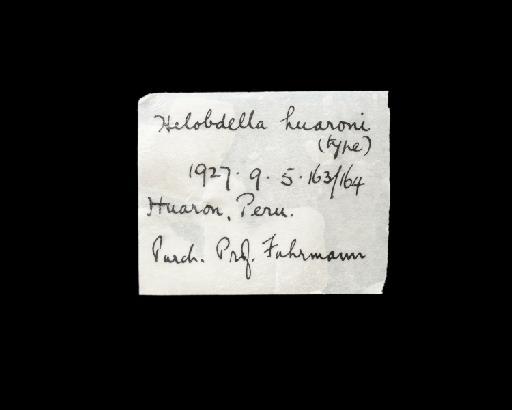 Helobdella huaroni
(type)
1927.9.5.163/164
Huaron, Peru.
Purch. Prof. Fuhrmann